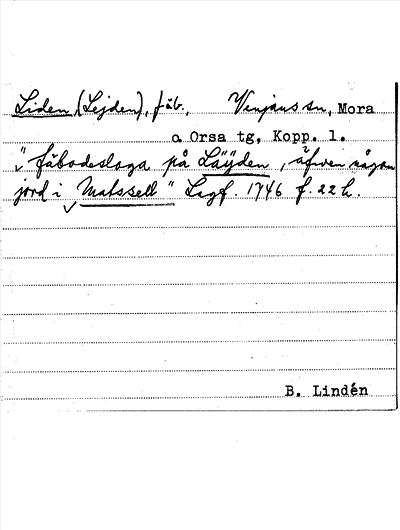 Liden, (Lejden), fäb. Venjans sn, Mora
o. Orsa tg, Kopp. l.
"fäbodesloga på Läÿden, äfwen någon
jord i Matssell" Lagf. 1746 f. 22 h.
B. Lindén